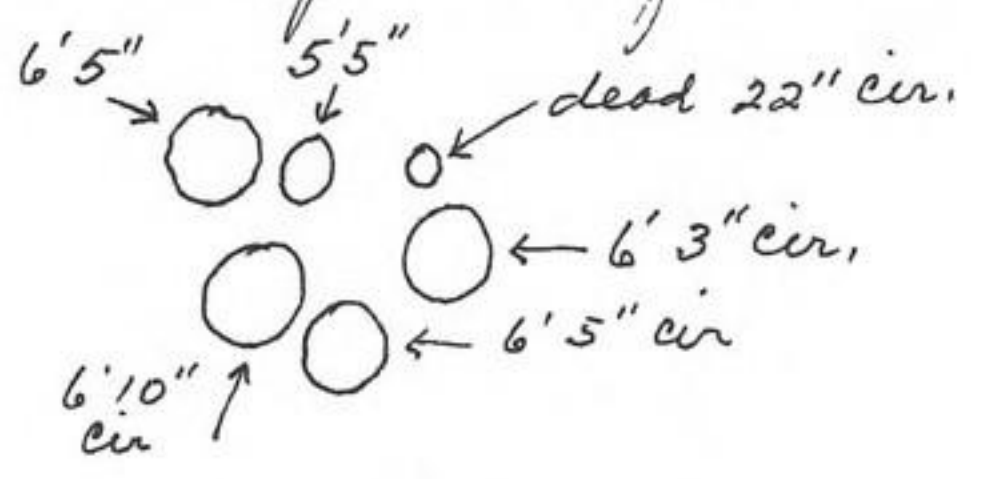 6'5"
5'5"
dead 22" cir.
6' 3" cir.
6' 5" cir
6'10"
cir